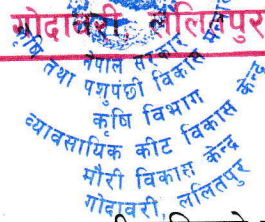 गोदावरी, ललितपुर
नेपाल सरकार
कृषि तथा पशुपंछी विकास
कृषि विभाग
व्यावसायिक कीट विकास केन्द्र
मौरी विकास केन्द्र
गोदावरी, ललितपुर